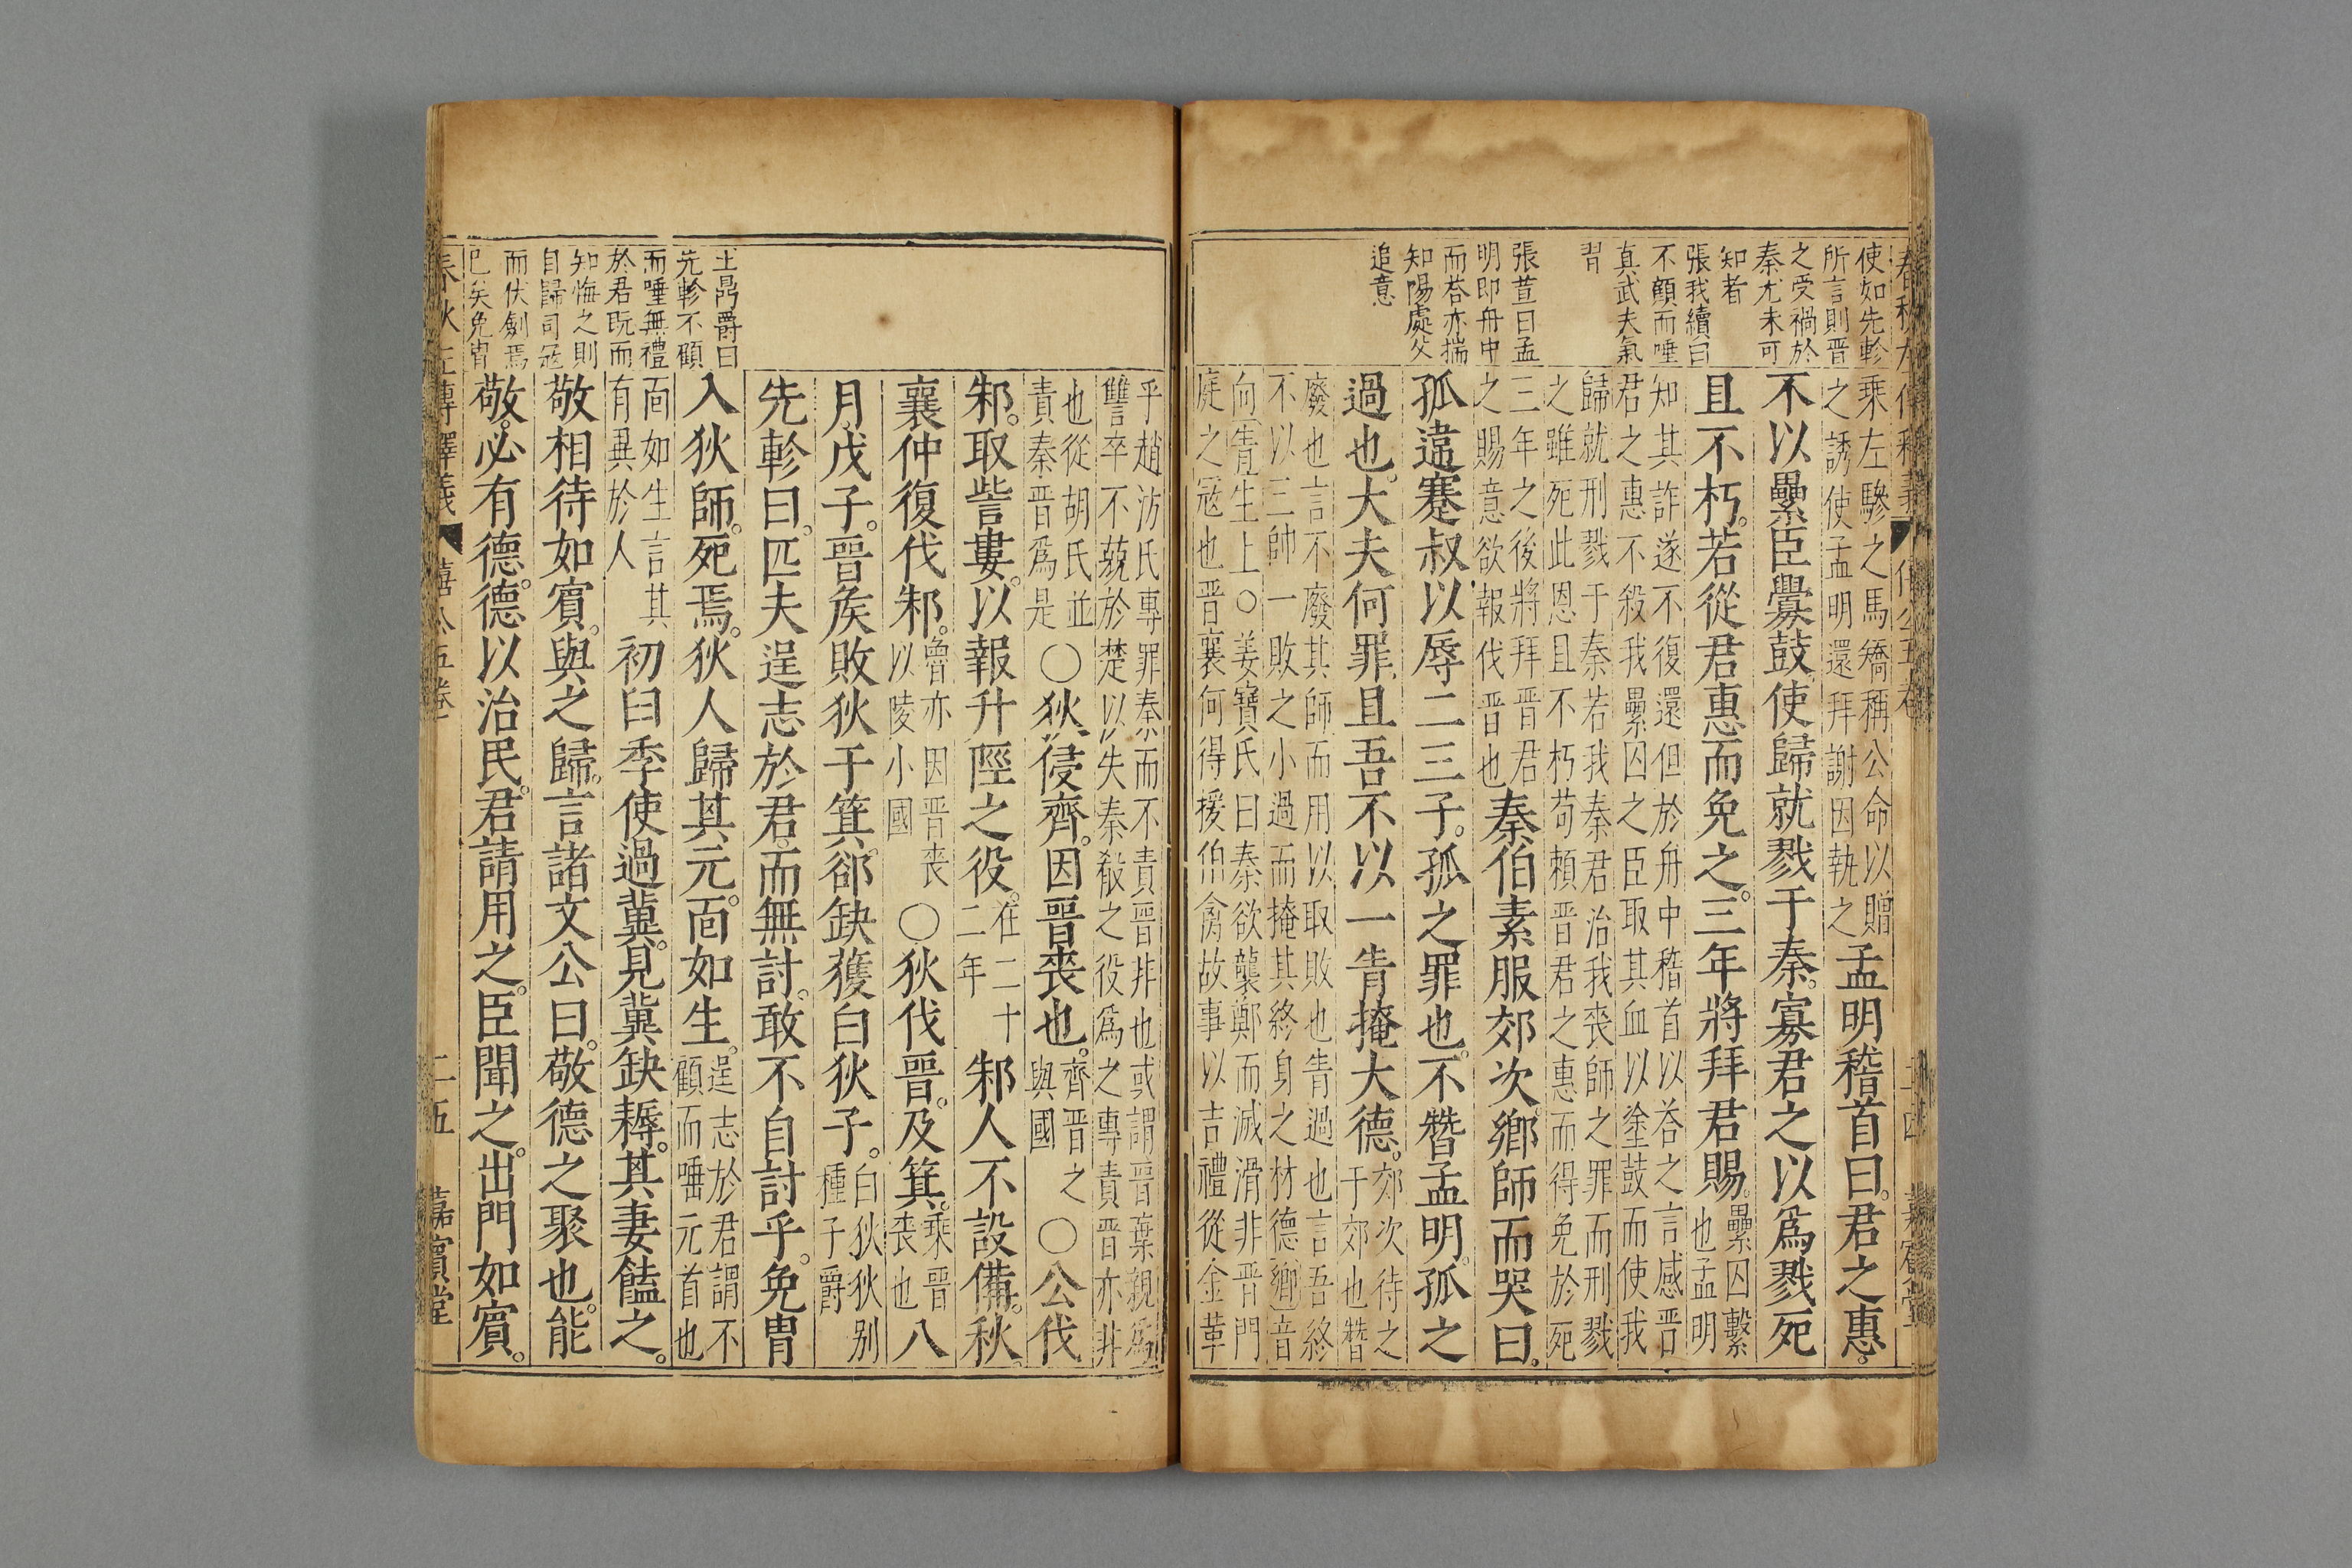 春秋左傳釋義
僖公五卷
二十四
嘉賓堂
使如先軫
所言則晋
之受禍於
秦尤未可
知者
張我續曰
不顧而唾
真武夫氣
習
張萱曰孟
明即舟中
而荅亦揣
知陽處父
追意
乘左驂之馬矯稱公命以贈
之誘使孟明還拜謝因執之
孟明稽首曰君之惠
不以纍臣釁鼓使歸就戮于秦寡君之以爲戮死
且不朽若從君惠而免之三年將拜君賜
纍囚繫
也孟明
知其詐遂不復還但於舟中稽首以荅之言感晋
君之惠不殺我纍囚之臣取其血以塗鼓而使我
歸就刑戮于秦若我秦君治我喪師之罪而刑戮
之雖死此恩且不朽苟頼晋君之惠而得免於死
三年之後將拜晋君
之賜意欲報伐晋也
秦伯素服郊次鄉師而哭曰
孤違蹇叔以辱二三子孤之罪也不替孟明孤之
過也大夫何罪且吾不以一眚掩大德
郊次待之
于郊也替
廢也言不廢其師而用以取敗也眚過也言吾終
不以三帥一敗之小過而掩其終身之材德鄉音
向眚生上○姜寶氏曰秦欲襲鄭而滅滑非晋門
庭之冦也晋襄何得援伯禽故事以吉禮從金革
乎趙汸氏專罪秦而不責晋非也或謂晋棄親爲
讐卒不兢於楚以失秦殽之役爲之專責晋亦非
也從胡氏並
責秦晋爲是
○狄侵齊因晋喪也
齊晋之
與國
○公伐
邾取訾婁以報升陘之役
在二十
二年
邾人不設備秋
襄仲復伐邾
魯亦因晋喪
以陵小國
○狄伐晋及箕
乘晋
喪也
八
月戊子晋矦敗狄于箕郤缺獲白狄子
白狄狄别
種子爵
先軫曰匹夫逞志於君而無討敢不自討乎免胄
入狄師死焉狄人歸其元面如生
逞志於君謂不
顧而唾元首也
面如生言其
有異於人
初臼季使過冀見冀缺耨其妻饁之
敬相待如賓與之歸言諸文公曰敬德之聚也能
敬必有德德以治民君請用之臣聞之出門如賓
王鼎爵曰
先軫不顧
而唾無禮
於君既而
知悔之則
自歸司冦
而伏劍焉
已矣免胄
春秋左傳釋義
僖公五卷
二十五
嘉賓堂